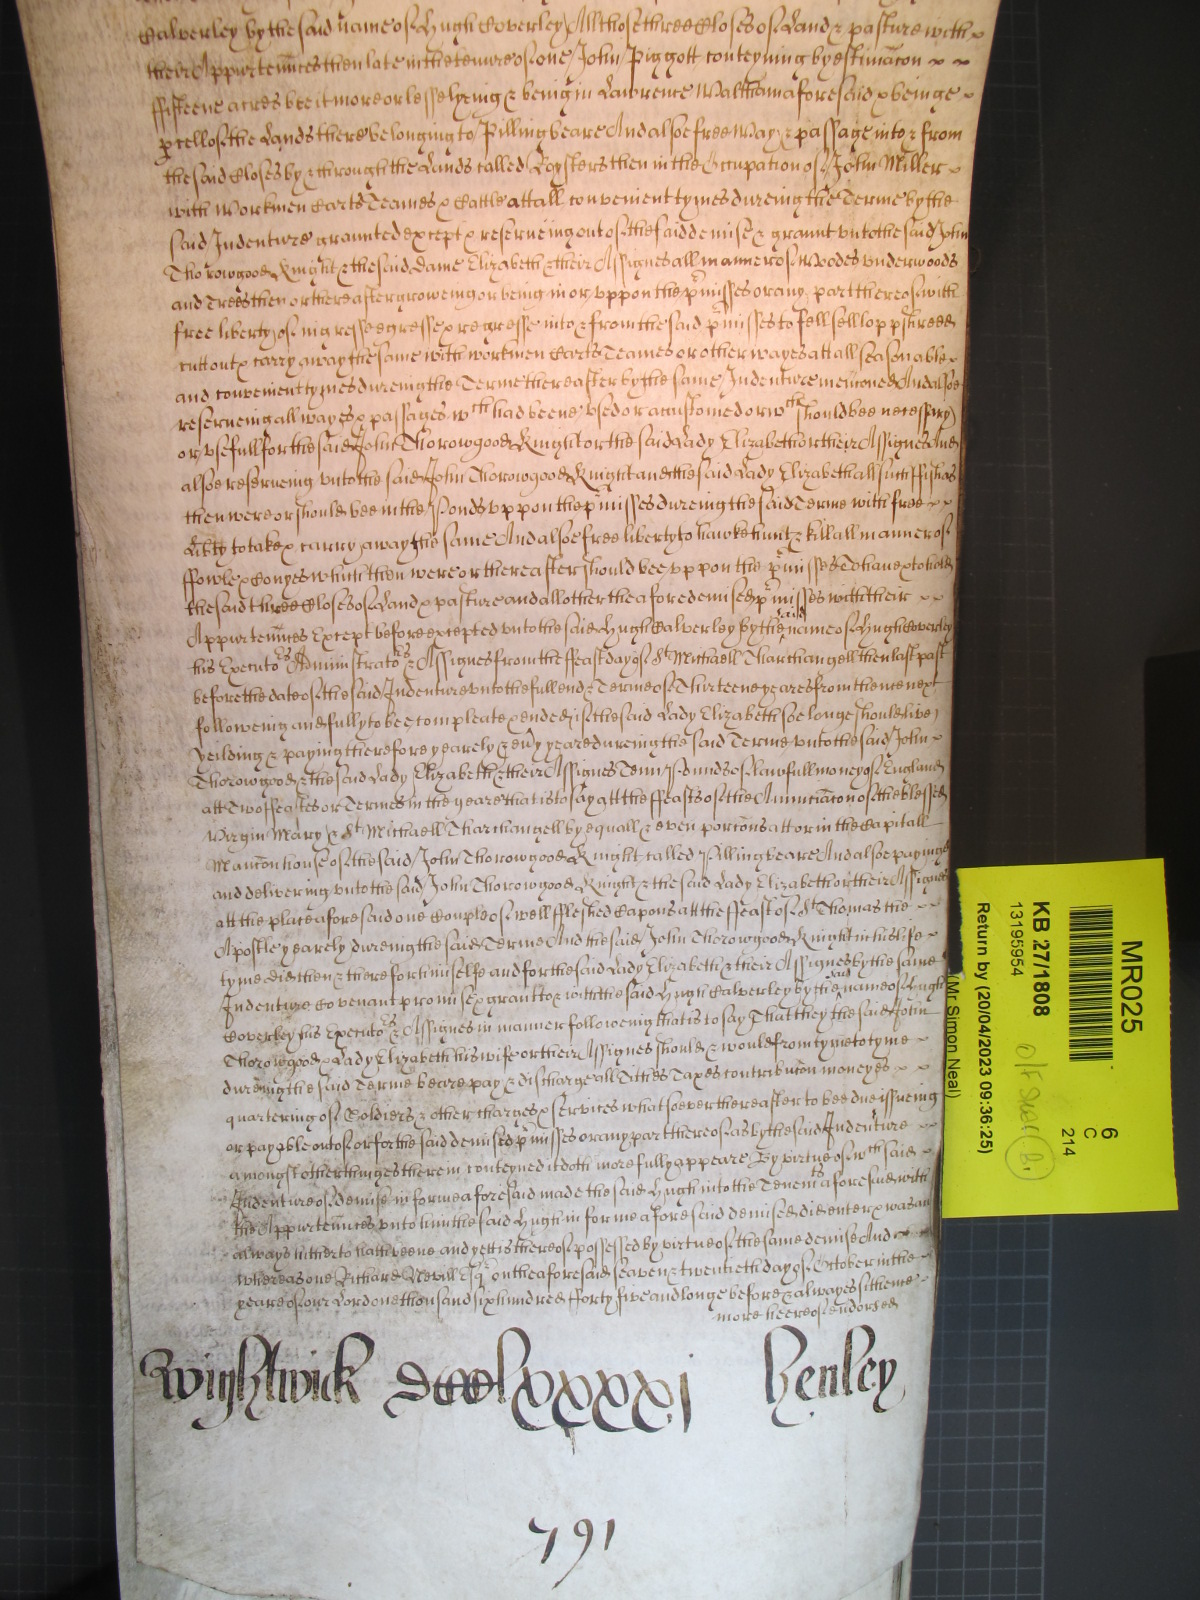 Calverley by the said name of Hugh Coverley All those three Closes of Land & pasture with
their Appurtenñces then late in the tenure of one John Piggott conteyning by estimac̃on
ffifteene acres bee it more or lesse lyeing & being in Lawrence Waltham aforesaid & beinge
p̱cell of the Lands there belonging to Pillingbeare And alsoe free Way & passage into & from
the said Closes by & through the Lands called Roysters then in the Occupation of John Miller
with Workmen Carts Teames & Cattle att all convenient tymes dureing the Terme by the
said Indenture graunted except & reserveing out of the said demise & graunt unto the said John
Thorowgood Knight & the said Dame Elizabeth & their Assignes all manner of Woodes underwoods
and Trees then or thereafter groweing or being in or uppon the p̃misses or any part thereof with
free liberty of ingresse egresse & regresse into & from the said p̃misses to fell sell lopp shreed
cutt out & carry away the same with workmen Carts Teames or other wayes att all seasonable
and convenient tymes dureing the Terme thereafter by the same Indenture menc̃oned And alsoe
reserveing all wayes & passages wch had beene used or accustomed or wch should bee necessary
or usefull for the said John Thorowgood Knight or the said Lady Elizabeth or their Assignes And
alsoe reserveing unto the said John Thorowgood Knight and the said Lady Elizabeth all such ffish as
then were or should bee in the Ponds uppon the p̃misses dureing the said Terme with free
Libty to take & carry away the same And alsoe free liberty to hawke hunt & kill all manner of
ffowle & Conyes which then were or thereafter should bee uppon the p̃misses To have & to hold
the said three Closes of Land & pasture and all other the afore demised p̃misses with their
Appurtenñces Except before excepted unto the said Hugh Calverley by the said name of Hugh Coverley
his Executors Administrators & Assignes from the ffeast day of St Michaell Tharchangell then last past
before the date of the said Indenture unto the full end & Terme of Thirteene yeares from thence next
followeing and fully to bee compleate & ended if the said Lady Elizabeth soe longe should live
Yeilding & paying therefore yearely & ev̄y yeare dureing the said Terme unto the said John
Thorowgood & the said Lady Elizabeth & their Assignes Tenn Pounds of lawfull money of England
att Two ffeastes or Termes in the yeare that is to say att the ffeasts of the Annunciac̃on of the blessed
Virgin Mary & St Michaell Tharchangell by equall & even porc̃ons att or in the Capitall
Manc̃on house of the said John Thorowgood Knight called Pillingbeare And alsoe payinge
and delivering unto the said John Thorowgood Knight & the said Lady Elizabeth or their Assignes
att the place aforesaid one Couple of well ffleshed Capons att the ffeast of St Thomas the
Apostle yearely dureing the said Terme And the said John Thorowgood Knight in his life
tyme did then & there for himselfe and for the said Lady Elizabeth & their Assignes by the same
Indenture Covenant promise & grant to & with the said Hugh Calverley by the said name of Hugh
Coverley his Executors & Assignes in manner followeing that is to say That they the said John
Thorowgood & Lady Elizabeth his wife or their Assignes should & would from tyme to tyme
dureing the said Terme beare pay & discharge all Tithes Taxes contribuc̃on moneyes
quartering of Soldiers & other charges & services whatsoever thereafter to bee due issueing
or payable out of or for the said demised p̃misses or any part thereof as by the said Indenture
amongst other thinges therein conteyned it doth more fully appeare By virtue of wch said
Indenture of demise in forme aforesaid made the said Hugh into the Tenemts aforesaid with
the Appurtenñces unto him the said Hugh in forme aforesaid demised did enter & was and
always hitherto hath beene and yett is thereof possessed by virtue of the same demise And
whereas one Richard Nevill Esqr on the aforesaid seaven & twentieth day of October in the
yeare of our Lord one thousand six hundred fforty five and longe before & alwayes sithence
more hereof endorsed
Wightwick dcclxxxxj henley
791
MR025
6
C
214
KB 27/1808
13195954
Return by (20/04/2023 09:36:25)
(Mr Simon Neal)